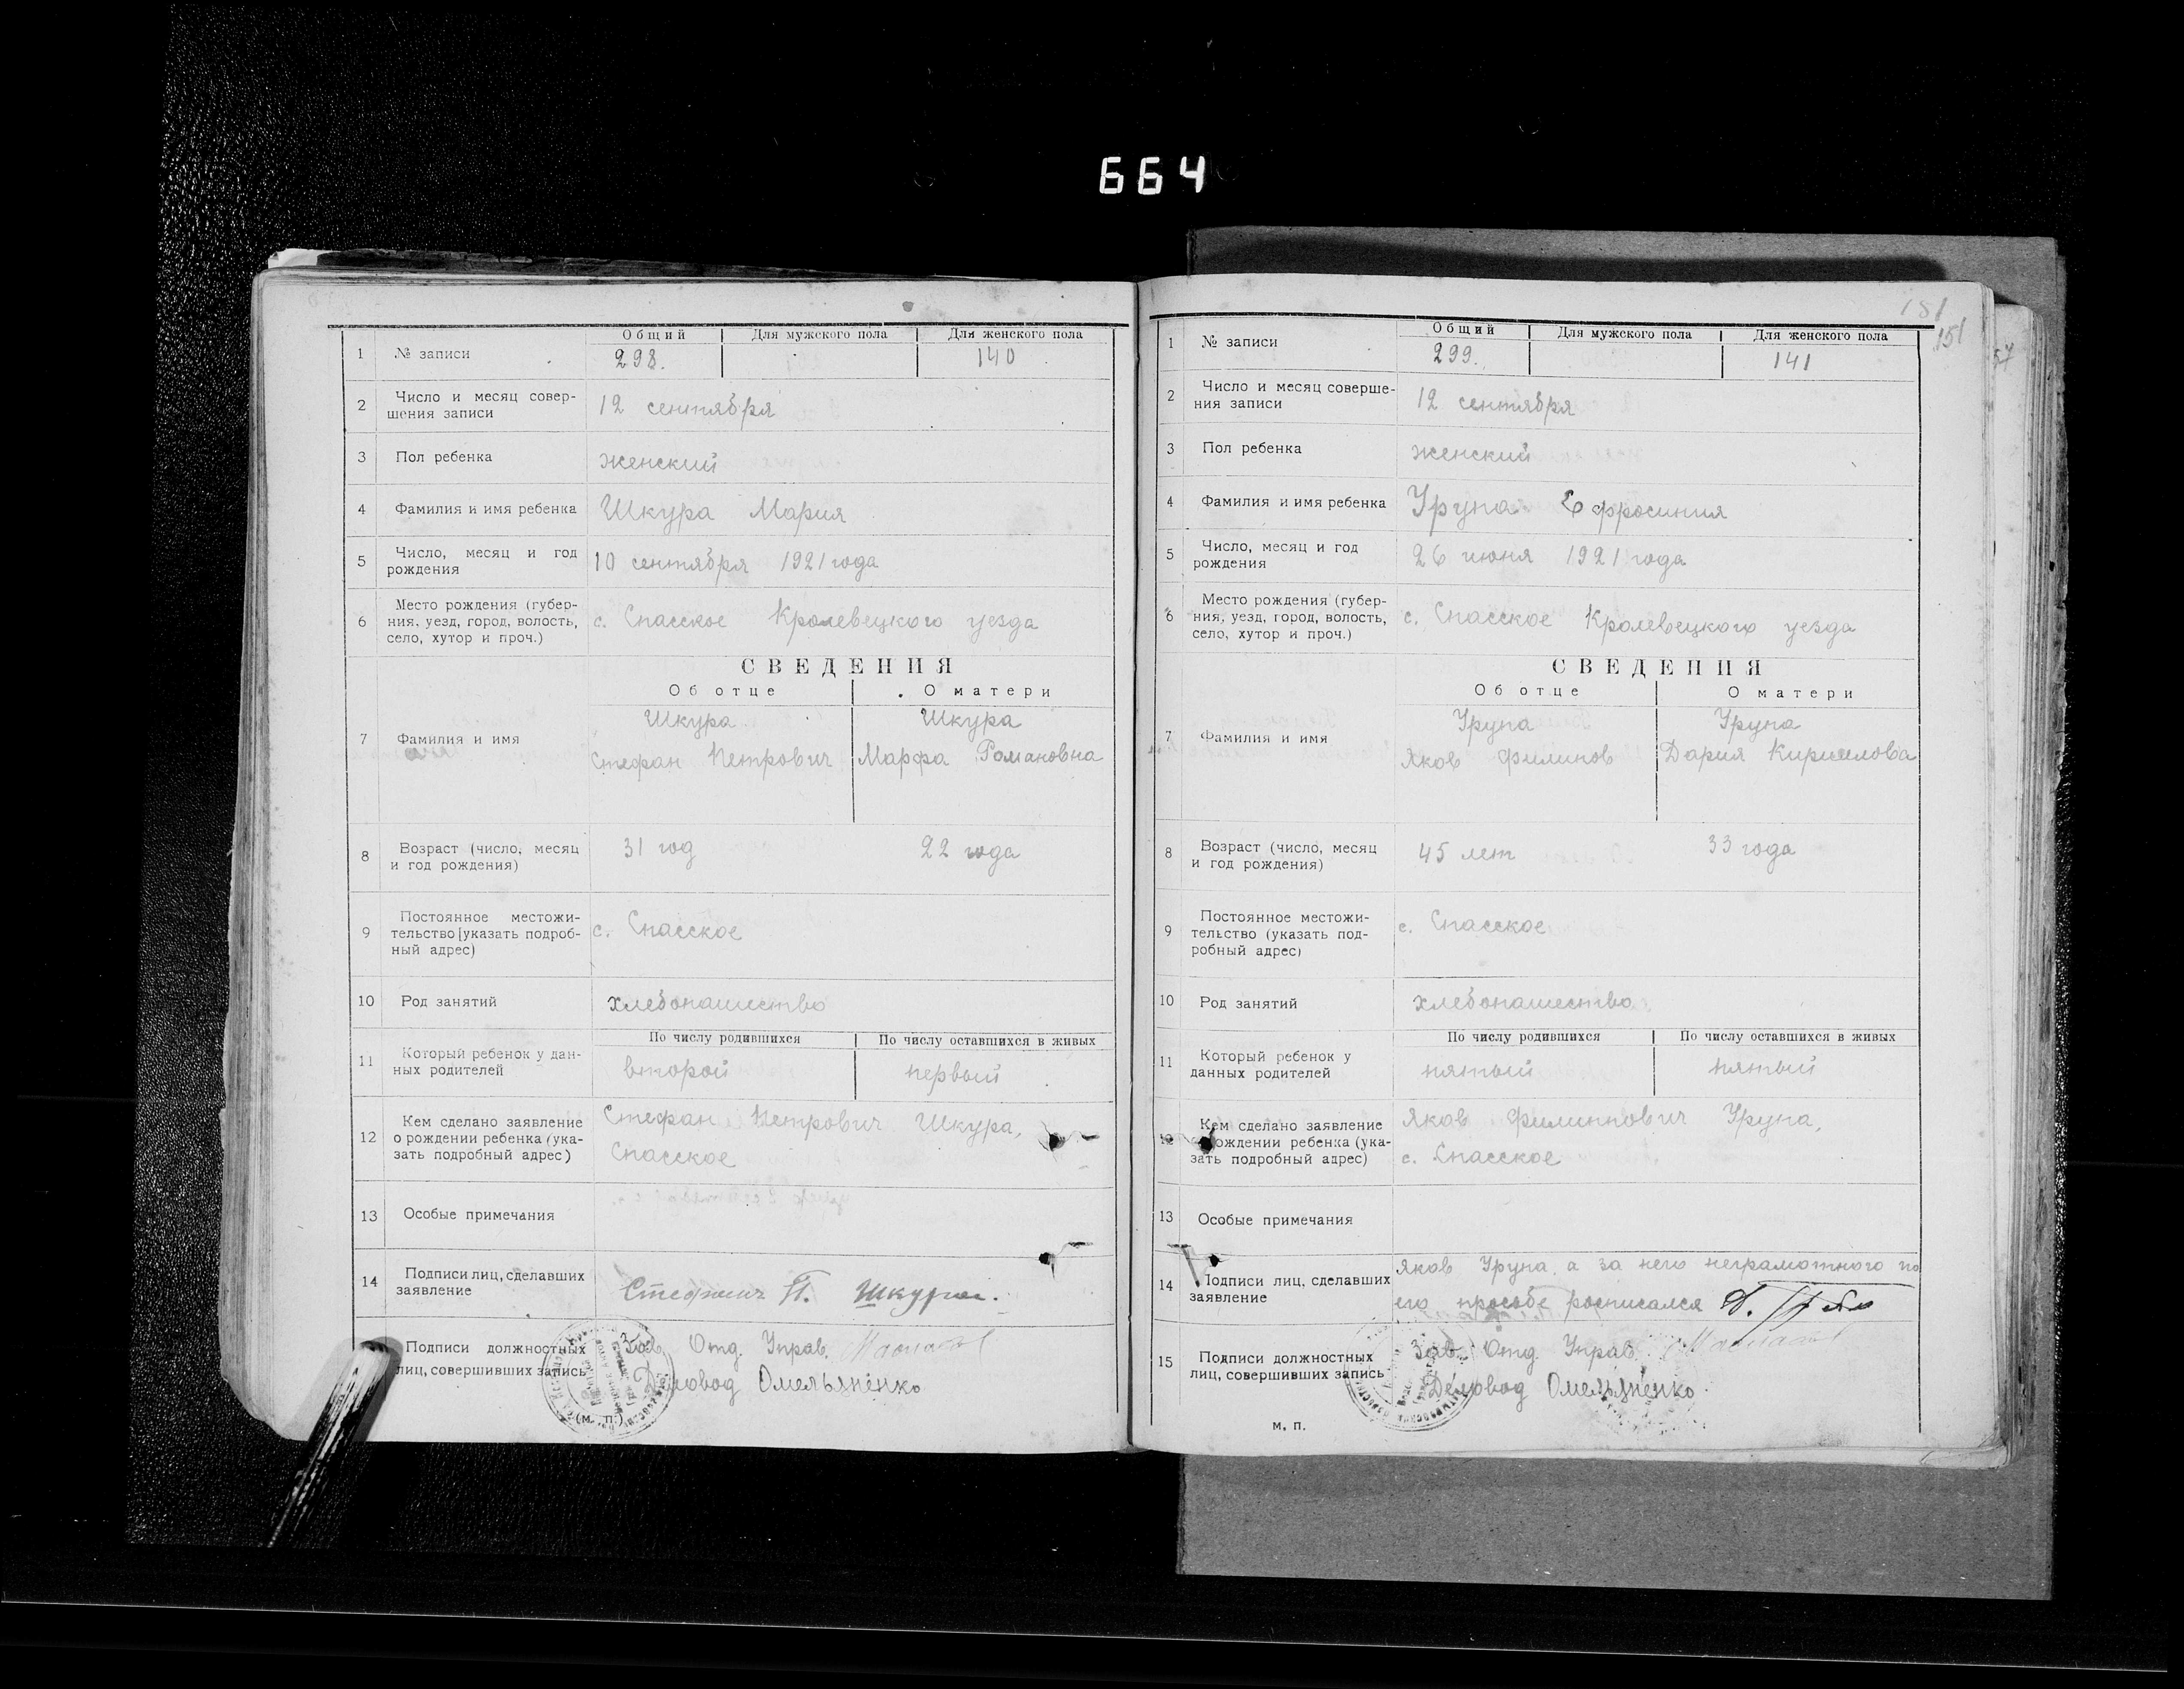 664
1 № записи Общий Для мужского пола Для женского пола
298. 140
2 Число и месяц совер-
шения записи
12 сентября
3 Пол ребенка женский
4 Фамилия и имя ребенка Шкура Мария
5 Число, месяц и год
рождения
10 сентября 1921 года
6 Место рождения (губер-
ния, уезд, город, волость,
село, хутор и проч.)
с. Спасское Кролевецкого уезда
СВЕДЕНИЯ
Об отце О матери
7 Фамилия и имя
Шкура Шкура
Стефан Петрович Марфа Романовна
8 Возраст (число, месяц
и год рождения)
31 год 22 года
9 Постоянное местожи-
тельство [указать подроб-
ный адрес)
с. Спасское
10 Род занятий хлебопашество
По числу родившихся По числу оставшихся в живых
11 Который ребенок у дан-
ных родителей
второй первый
12 Кем сделано заявление
о рождении ребенка (ука-
зать подробный адрес)
Стефан Петрович Шкура,
Спасское
13 Особые примечания
14 Подписи лиц, сделавших
заявление
Стефан П. Шкура.
Подписи должностных
лиц, совершивших запись
Зав. Отд. Управ.
Деловод Омельяненко
(м. п.)
151
151
57
1 № записи Общий Для мужского пола Для женского пола
299. 141
2 Число и месяц соверше-
ния записи
12 сентября
3 Пол ребенка женский
4 Фамилия и имя ребенка Ярупа Ефросиния
5 Число, месяц и год
рождения
26 июня 1921 года
6 Место рождения (губер-
ния, уезд, город, волость,
село, хутор и проч.)
с. Спасское Кролевецкого уезда
СВЕДЕНИЯ
Об отце О матери
7 Фамилия и имя
Ярупа Ярупа
Яков Филипов Дария Кириллова
8 Возраст (число, месяц
и год рождения)
45 лет 33 года
9 Постоянное местожи-
тельство (указать под-
робный адрес)
с. Спасское
10 Род занятий хлебопашество
По числу родившихся По числу оставшихся в живых
11 Который ребенок у
данных родителей
пятый пятый
12 Кем сделано заявление
о рождении ребенка (ука-
зать подробный адрес)
Яков Филиппович Ярупа,
с. Спасское
13 Особые примечания
14 Подписи лиц, сделавших
заявление
Яков Ярупа, а за него неграмотного по
его просьбе росписался
15 Подписи должностных
лиц, совершивших запись
Зав. Отд. Управ.
Деловод Омельяненко.
м. п.